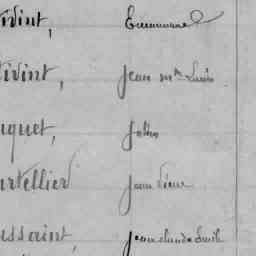 ivint, Emmanuel
ivint, Jean m^ie Louis
uquet, Jules
urtellier Jean Pierre
ussaint, Jean claude Emile